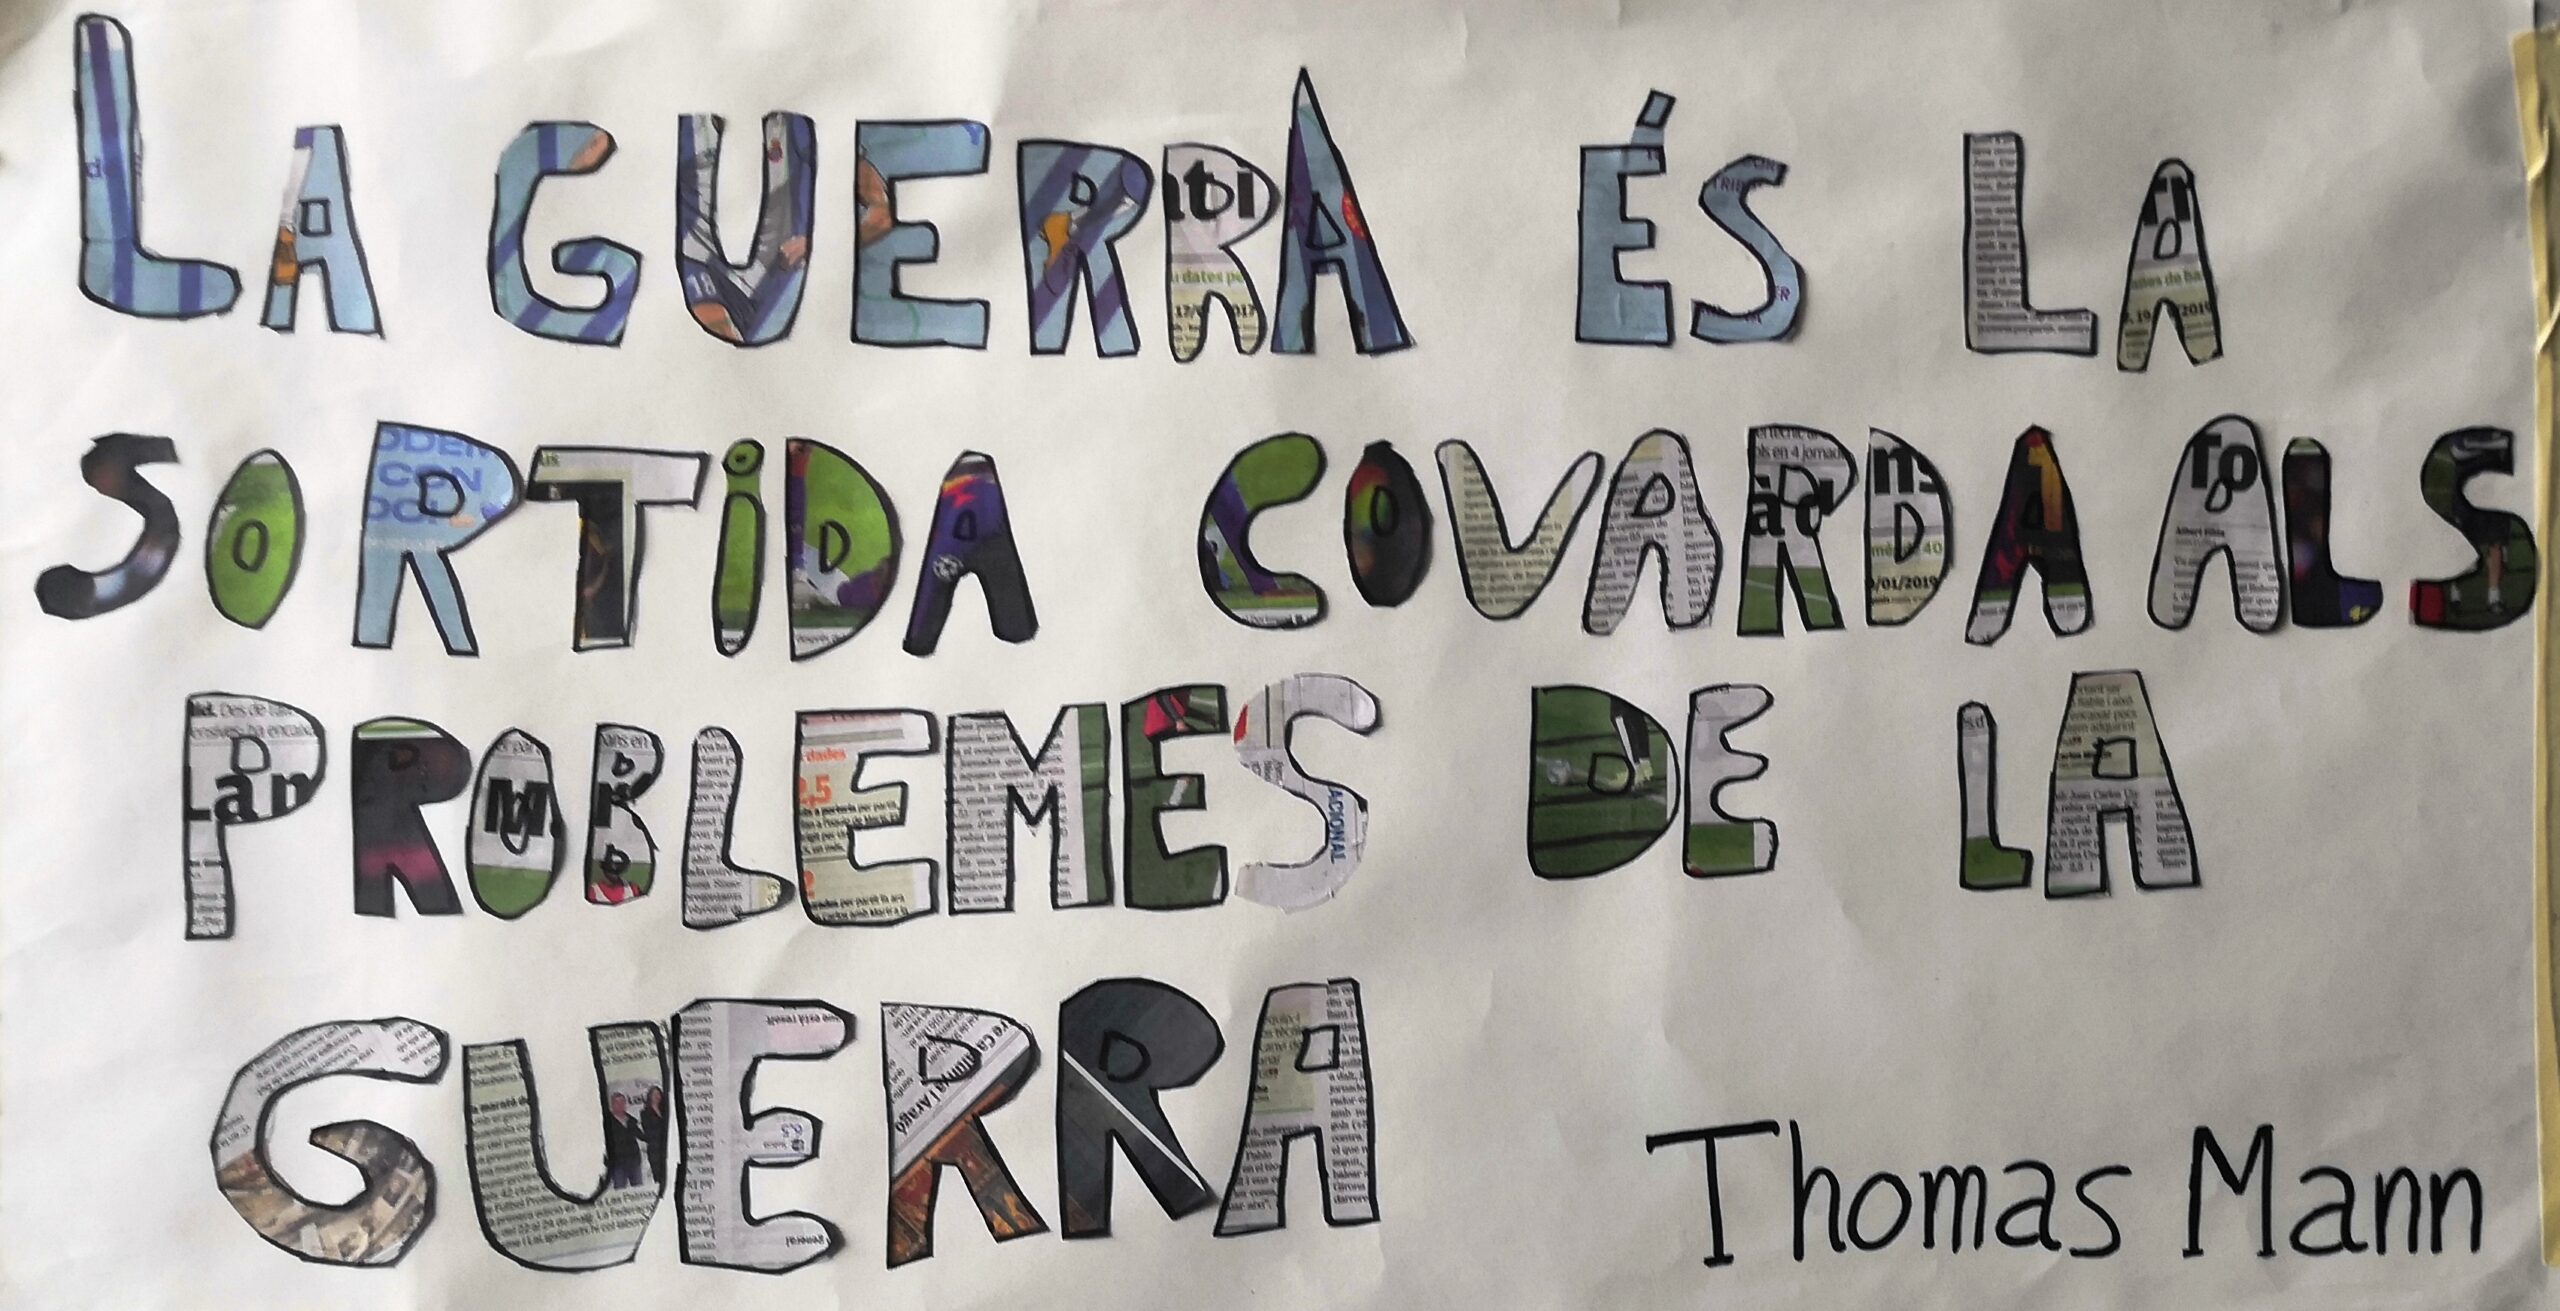 LA GUERRA ÉS LA
SORTiDA COVARDA ALS
PROBLEMES DE LA
GUERRA
Thomas Mann